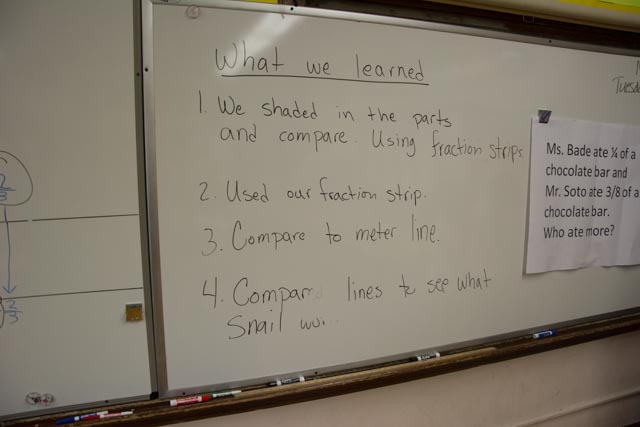 What we learned
1. We shaded in the parts
and compare. Using fraction strips
2. Used our fraction strip.
3. Compare to meter line.
4. Compare lines to see what
Snail
Ms. Bade ate ¼ of a
chocolate bar and
Mr. Soto ate 3/8 of a
chocolate bar.
Who ate more?
2/3
2/3